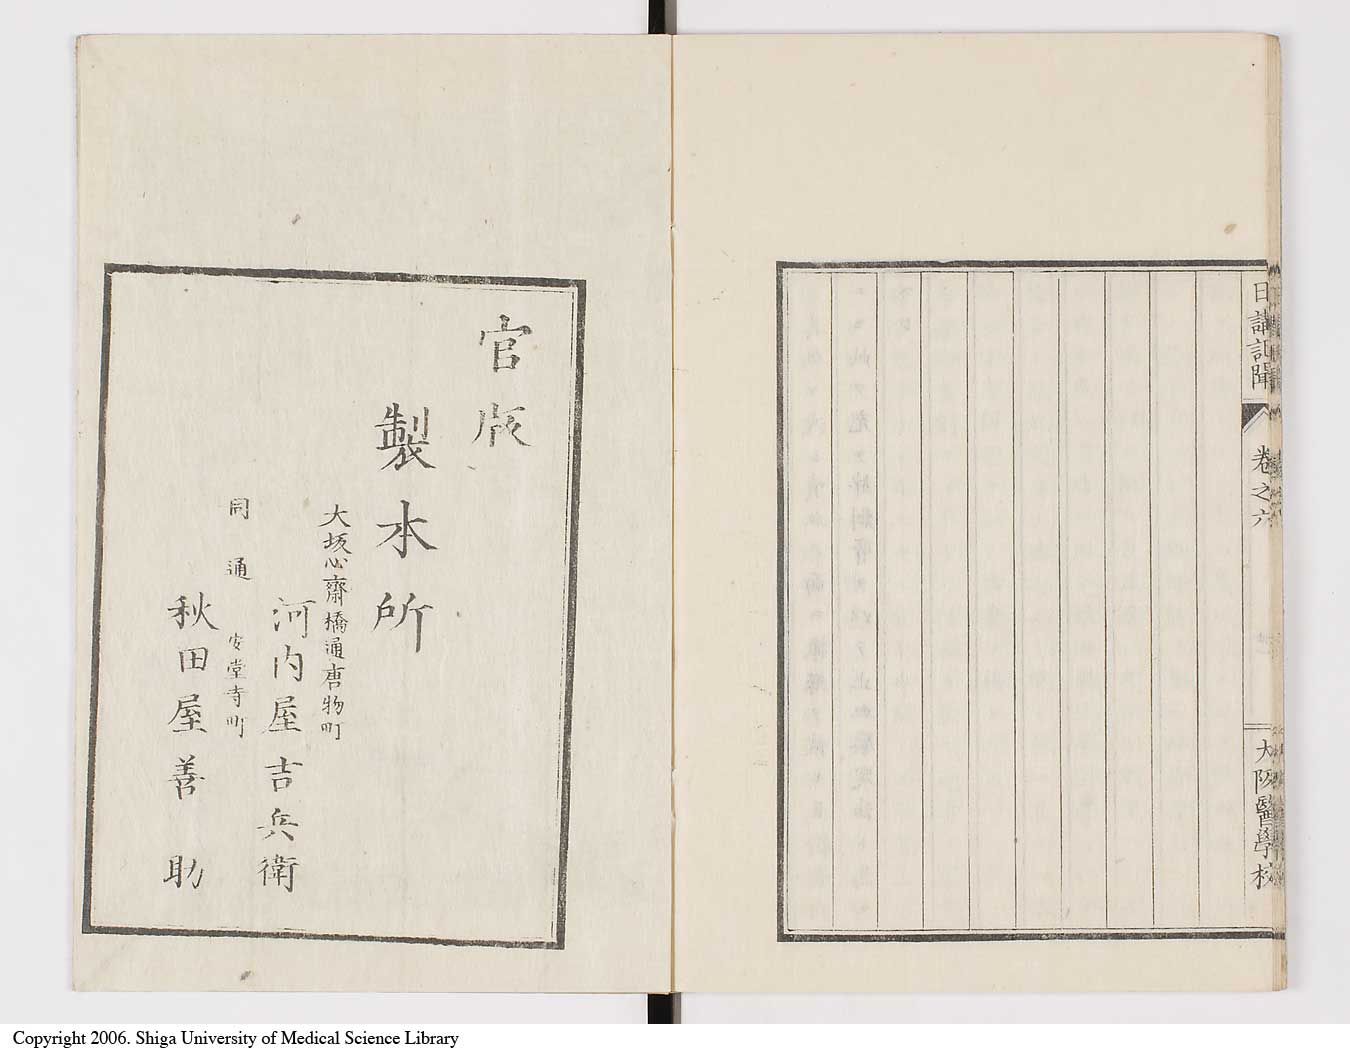 日講記聞
卷之六
大阪醫學校
官版
製本所
大坂心齋橋通唐物町
河内屋吉兵衛
同通安堂寺町
秋田屋善助
Copyright 2006. Shiga University of Medical Science Library